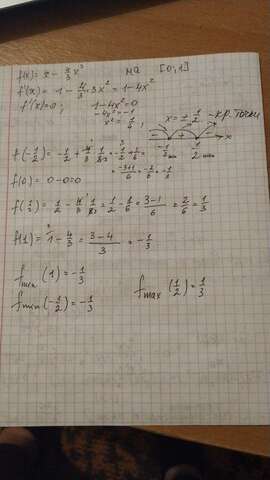 f(x) = x - 4/3 x³ на [0;1]
f'(x) = 1 - 4/3 · 3x² = 1-4x²
f'(x)=0; 1-4x²=0
-4x²=-1
x² = 1/4; x = ± 1/2 - кр. точки
- + - x
-1/2 min 1/2 max
f(-1/2) = -1/2 + 4/3 · 1/8 = -1/2 + 1/6 =
= (-3+1)/6 = -2/6 = -1/3
f(0) = 0-0=0
f(1/2) = 1/2 - 4/3 · 1/8 = 1/2 - 1/6 = (3-1)/6 = 2/6 = 1/3
f(1) = 1 - 4/3 = (3-4)/3 = -1/3
f min (1) = -1/3
f max (1/2) = 1/3
f min (-1/2) = -1/3